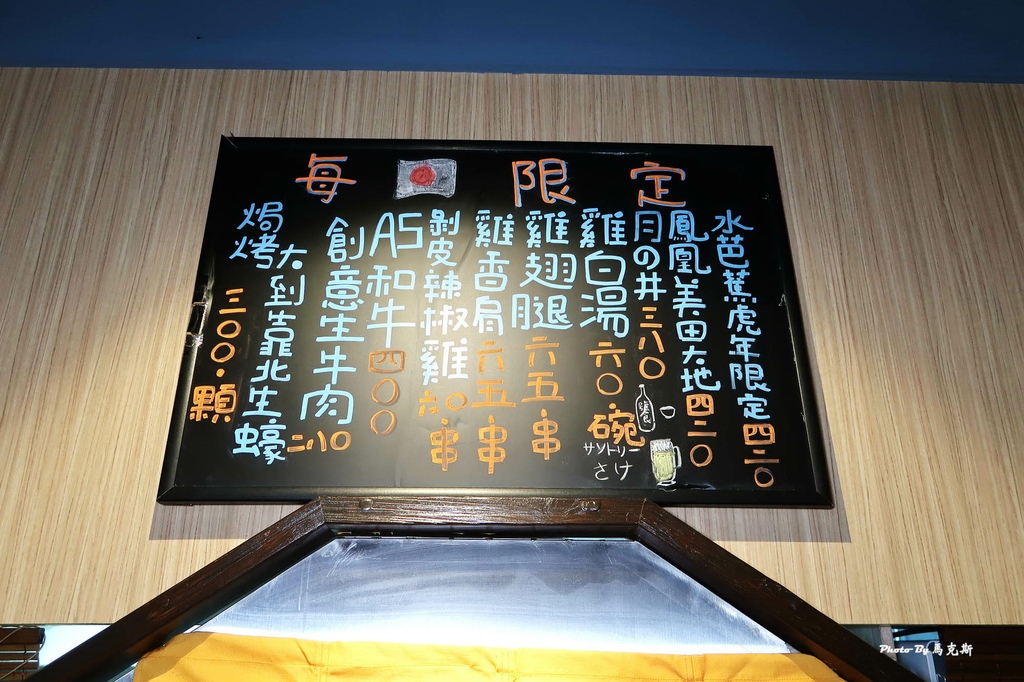 每 限定
水芭蕉虎年限定四二〇
鳳凰美田大地四二〇
月の井三八〇
雞白湯六〇.碗
サントリー
さけ
雞翅腿六五串
雞香肩六五串
剝皮辣椒雞六〇串
A5和牛四〇〇
創意生牛肉二八〇
大到靠北生蠔
焗烤三〇〇.顆
Photo By 馬克斯